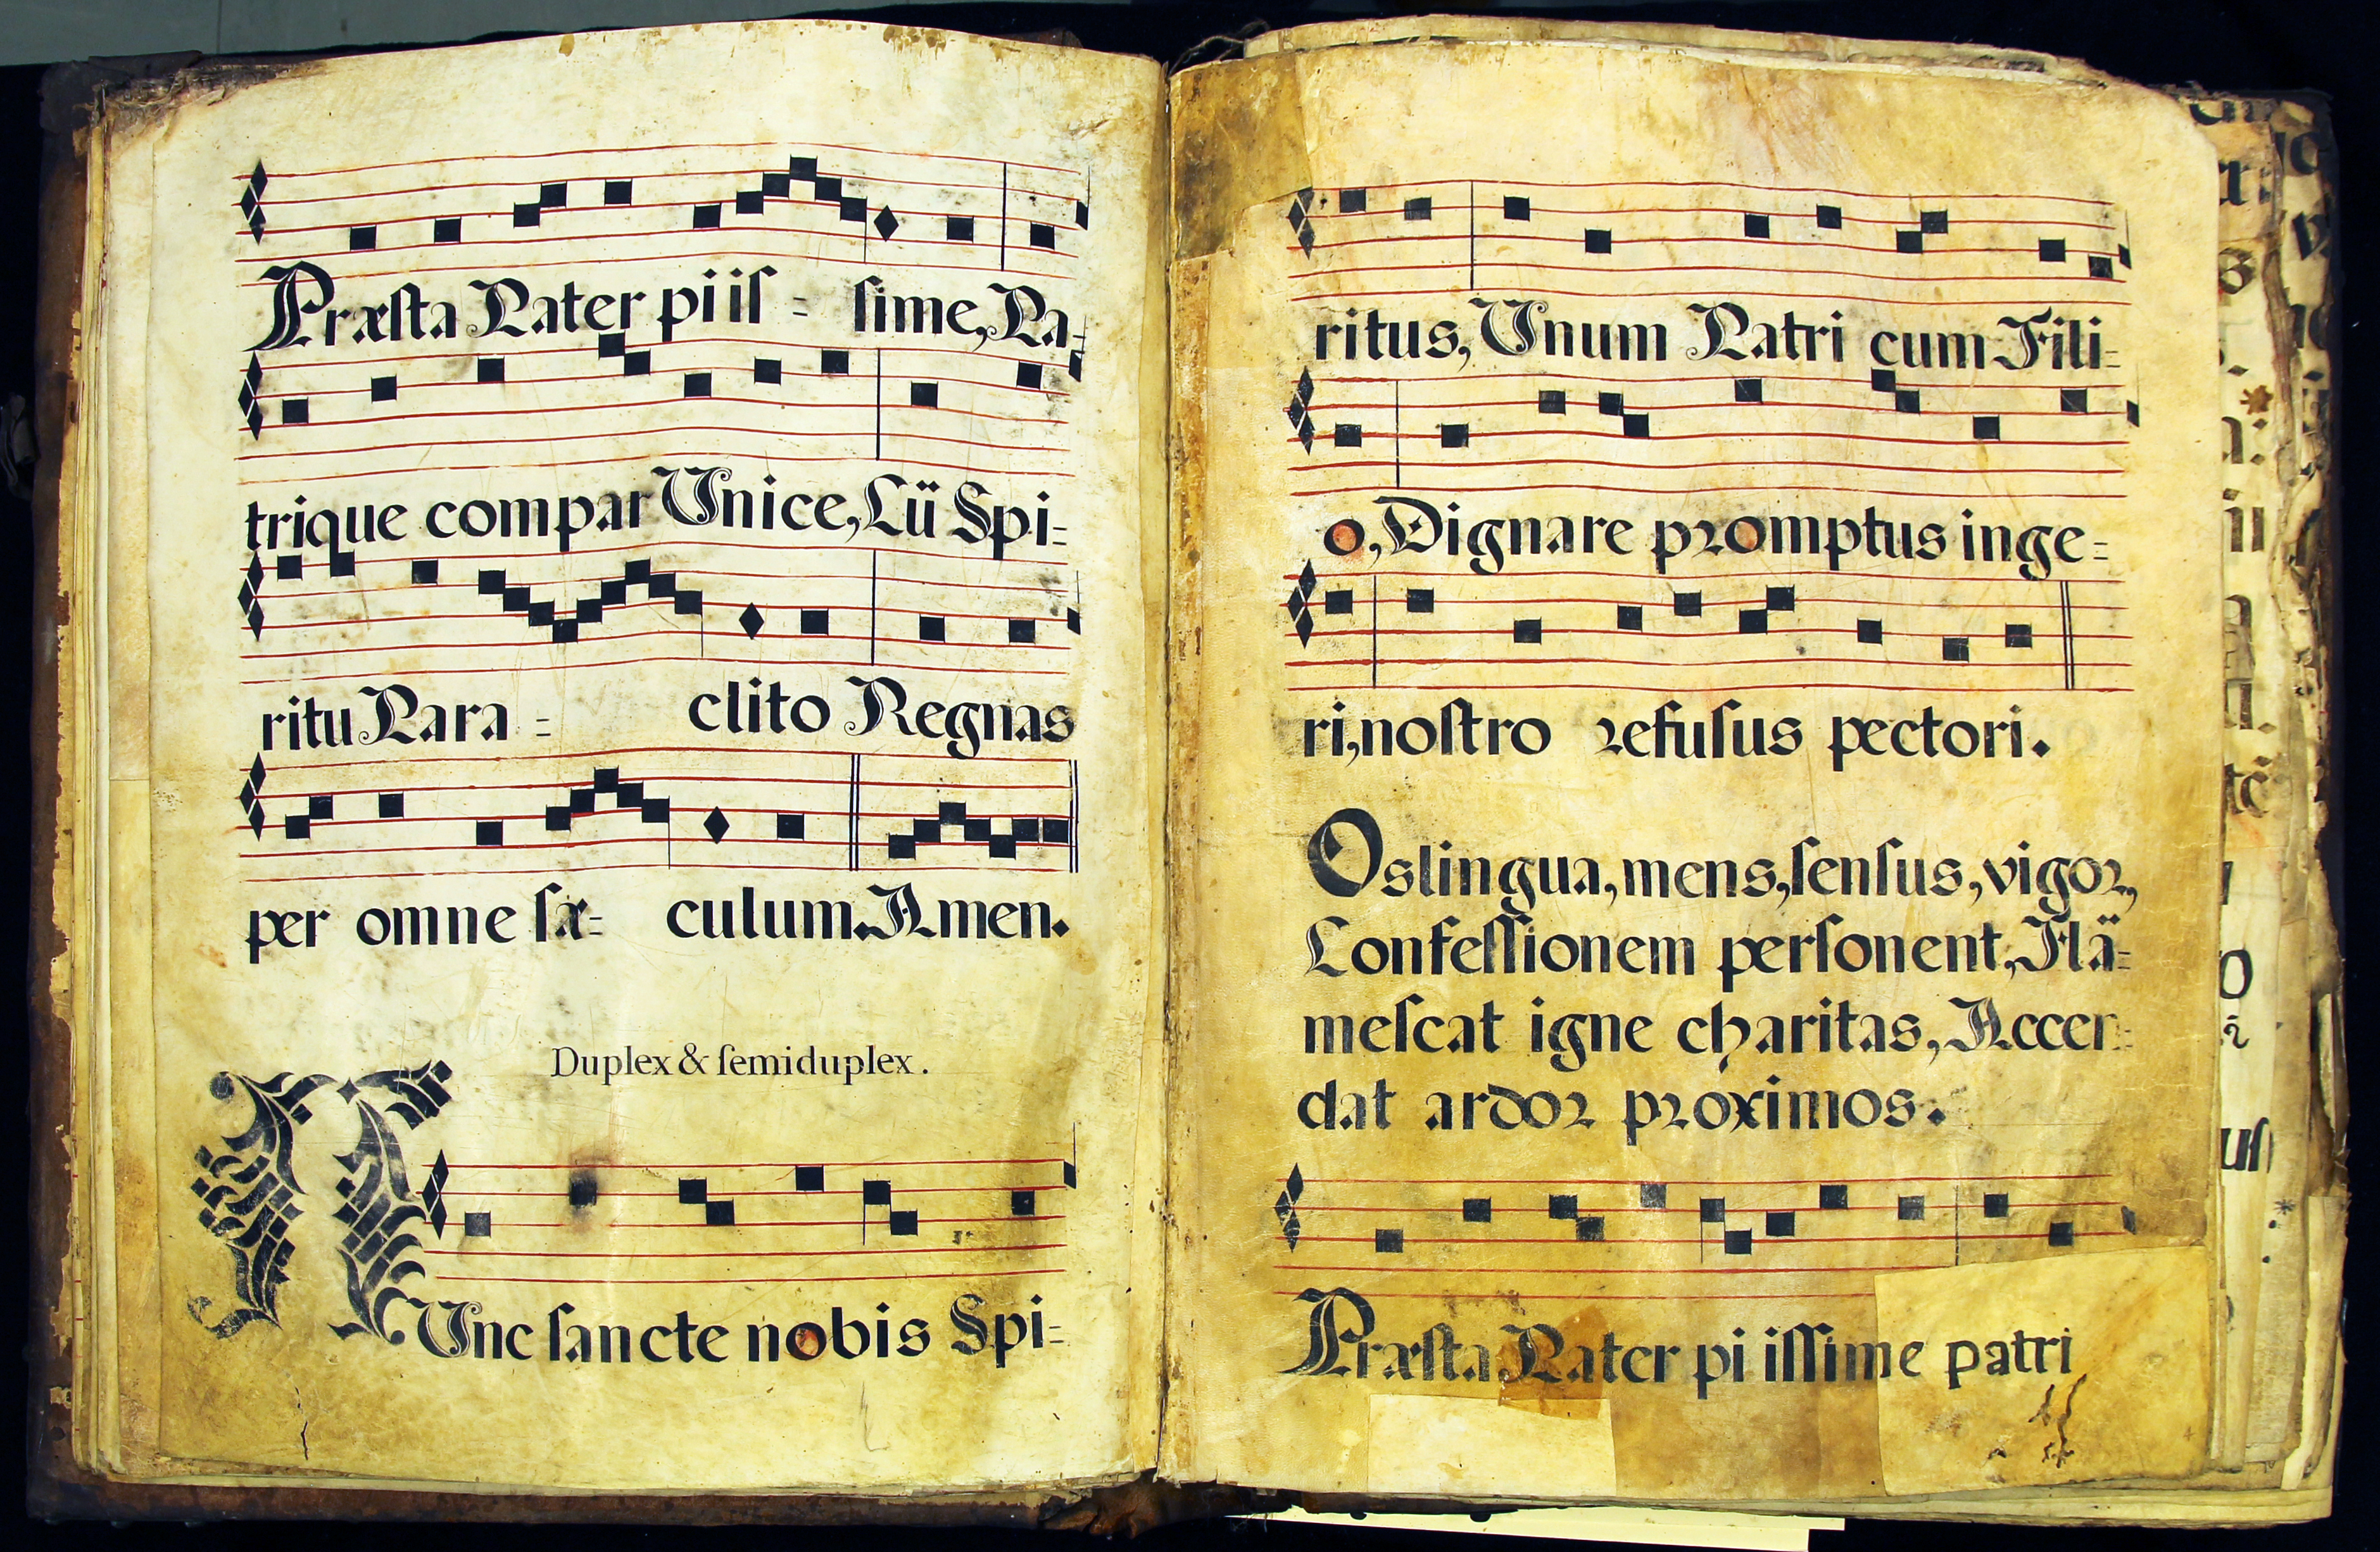 Præſta Pater pi iſ = ſime, Pa=
trique compar Unice, Cü Spi=
ritu Para = clito Regnas
per omne ſæ= culum. Amen.
Duplex & ſemiduplex.
NUnc ſancte nobis Spi=
ritus, Unum Patri cum Fili=
o, Dignare promptus inge=
ri, noſtro refuſus pectori.
Os lingua, mens, ſenſus, vigor,
Confeſſionem perſonent, Flã=
meſcat igne charitas, Accen=
dat ardor proximos.
Præſta Pater pi iſſime patri